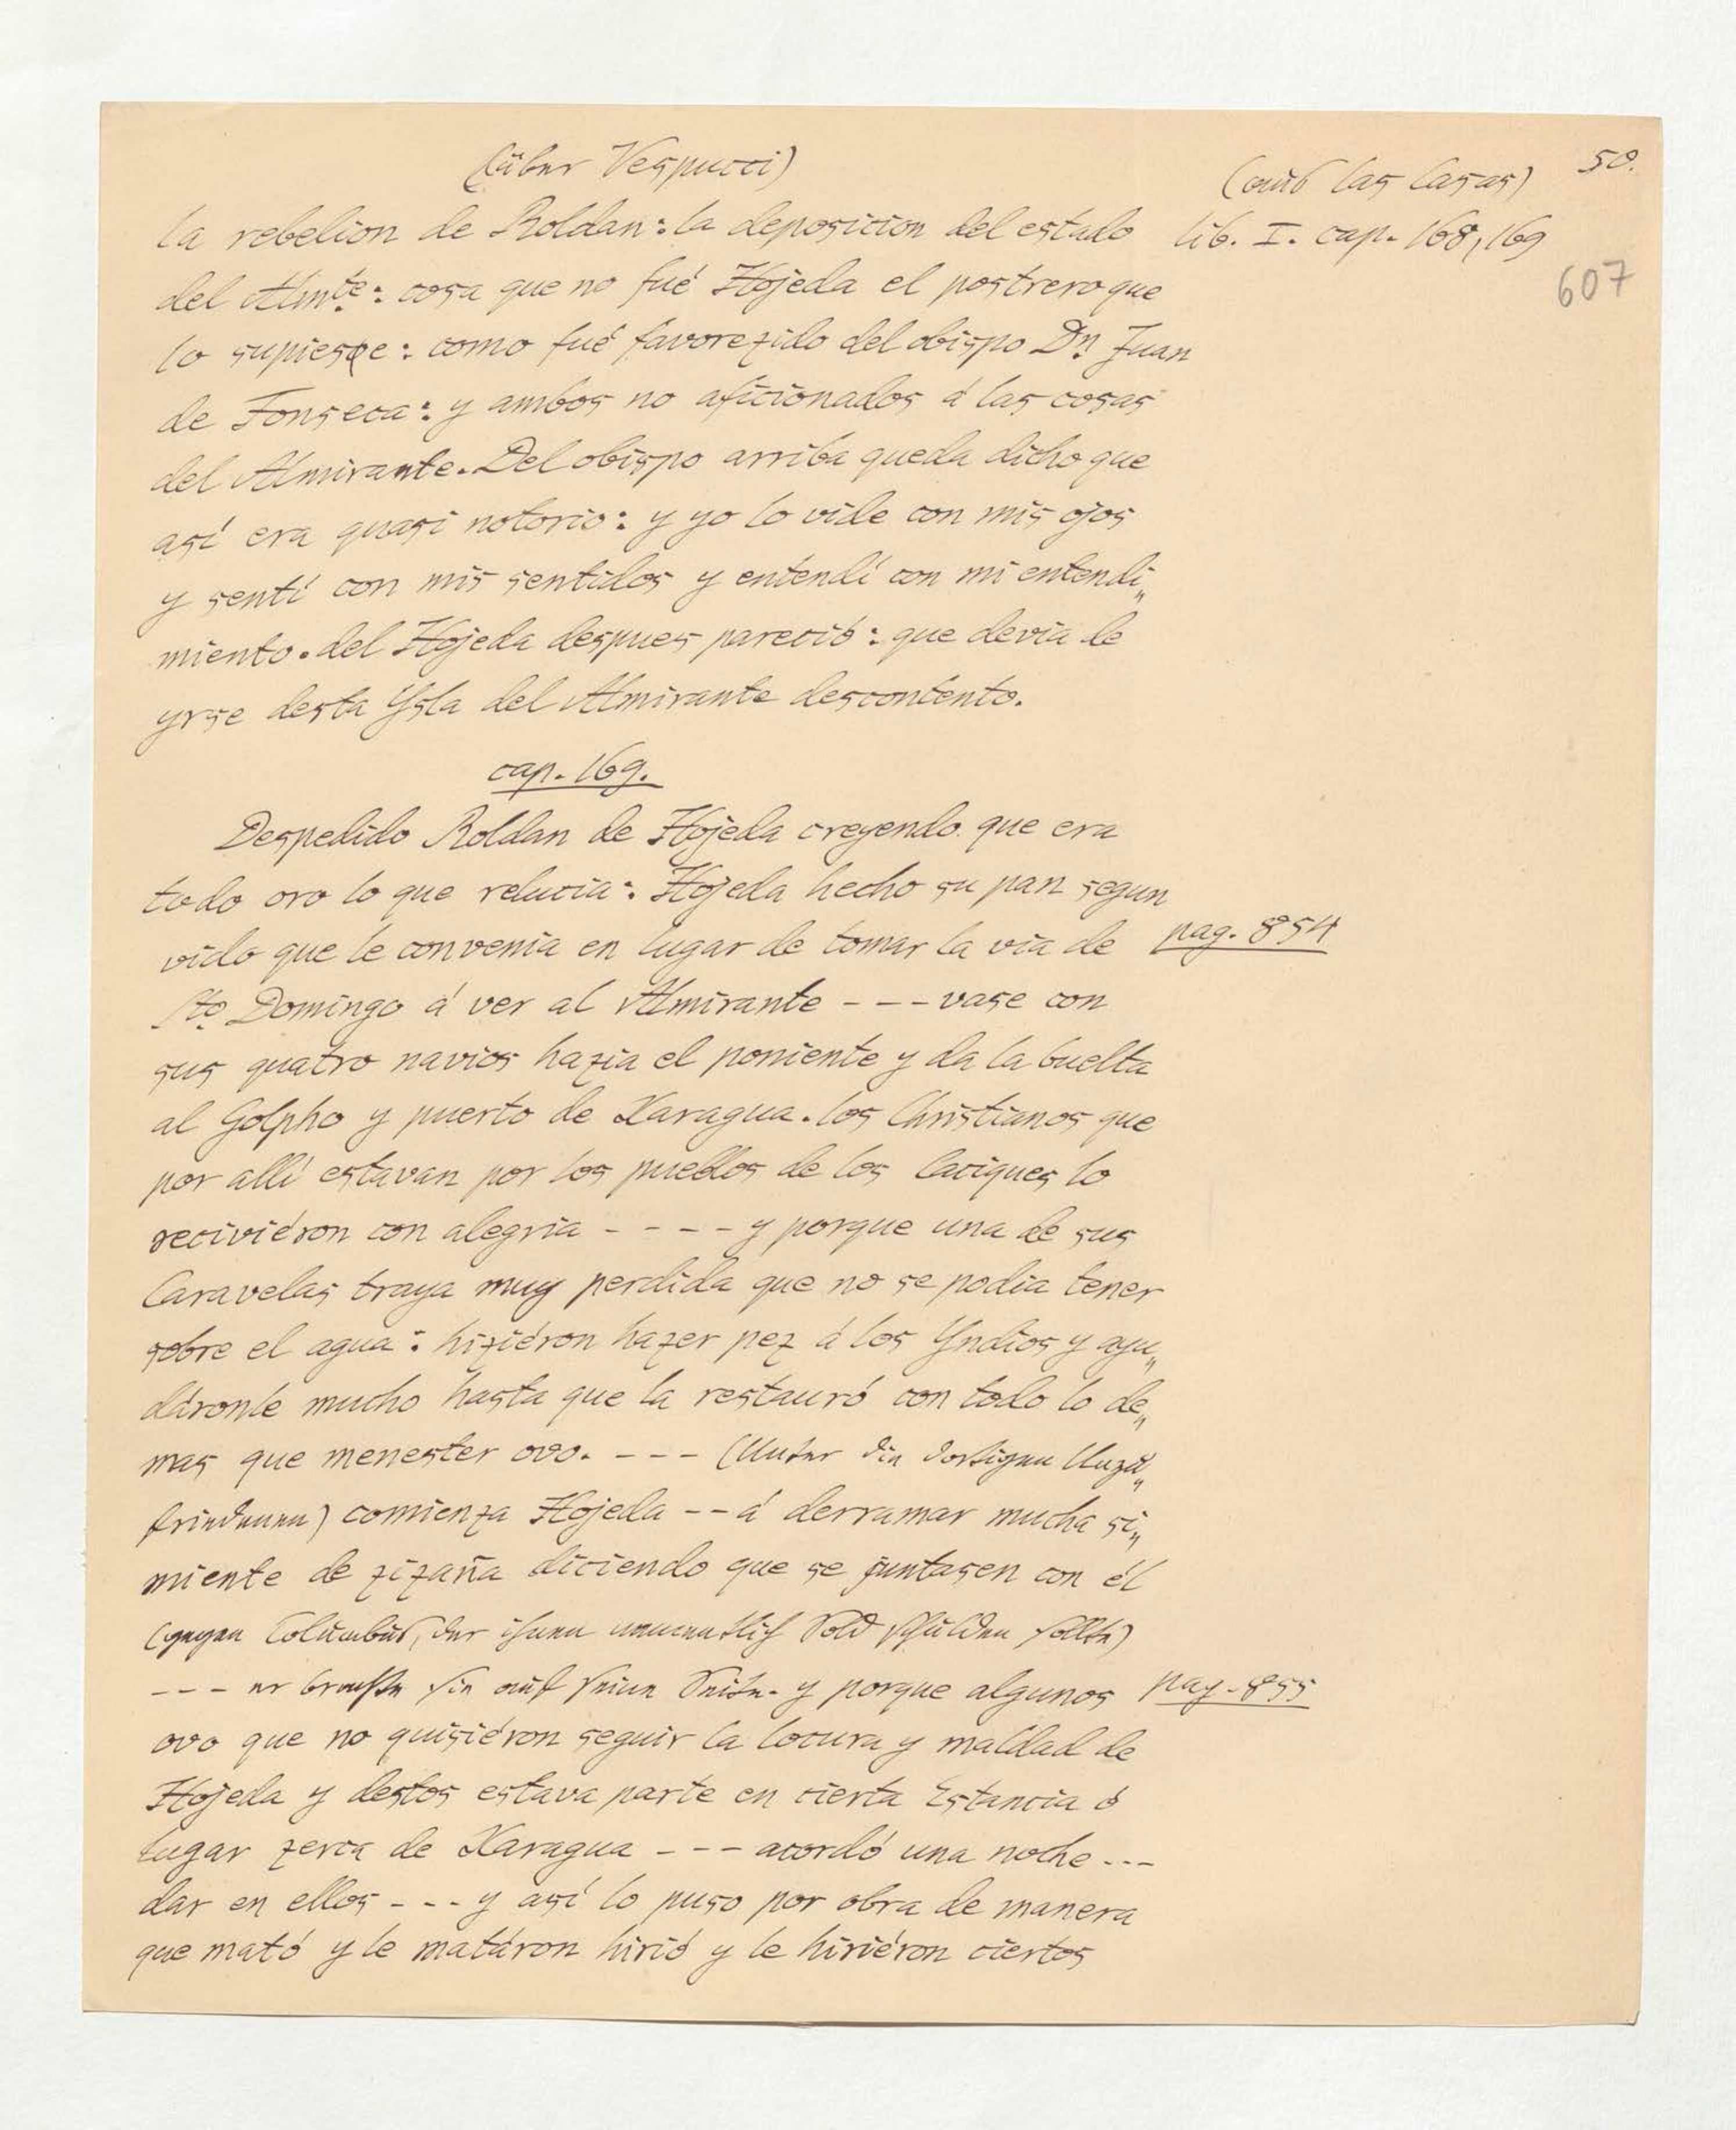 (über Vespucci)
(aus las Casas)
50.
la rebelion de Roldan: la deposicion del estado
lib. I. cap. 168, 169
del Almte: cosa que no fué Hojeda el postrero que
607
lo supiese: como fué favorezido del obispo Dn Juan
de Fonseca: y ambos no aficionados á las cosas
del Almirante. Del obispo arriba queda dicho que
así era quasi notorio: y yo lo vide con mis ojos
y sentí con mis sentidos y entendí con mi entendi„
miento. del Hojeda despues pareció: que devia de
yrse desta Ysla del Almirante descontento.
cap. 169.
Despedido Roldan de Hojeda creyendo que era
todo oro lo que relucia: Hojeda hecho su pan segun
vido que le convenia en lugar de tomar la via de
pag. 854
Sto Domingo á ver al Almirante - - - vase con
sus quatro navios hazia el poniente y da la buelta
al Golpho y puerto de Xaragua. los Christianos que
por allí estavan por los pueblos de los Caciques lo
reciviéron con alegria - - - - y porque una de sus
Caravelas traya muy perdida que no se podia tener
sobre el agua: hiziéron hazer pez á los Yndios y ayu„
dáronle mucho hasta que la restauró con todo lo de„
mas que menester ovo. - - - (Unter die dortigen Unzu„
friedenen) comienza Hojeda - - á derramar mucha si„
miente de zizaña diciendo que se juntasen con él
(gegen Columbus, der ihnen namentlich Sold schulden sollte)
- - - er brachte sie auf seine Seite. y porque algunos
pag. 855
ovo que no quisiéron seguir la locura y maldad de
Hojeda y destos estava parte en cierta Estancia ó
lugar zerca de Xaragua - - - acordó una noche - - -
dar en ellos - - - y así lo puso por obra de manera
que mató y le matáron hirió y le hiriéron ciertos